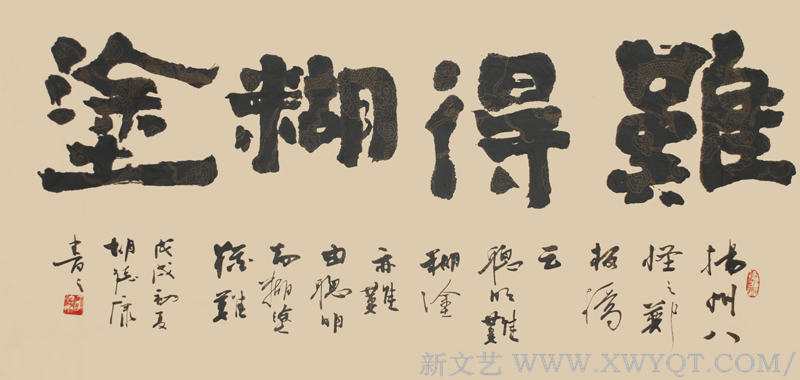 難得糊塗
揚州八
怪之鄭
板橋
云
聰明難
糊塗
亦難
由聰明
而糊塗
難
戊戌初夏
胡康
書之
新文艺 WWW.XWYQT.COM/